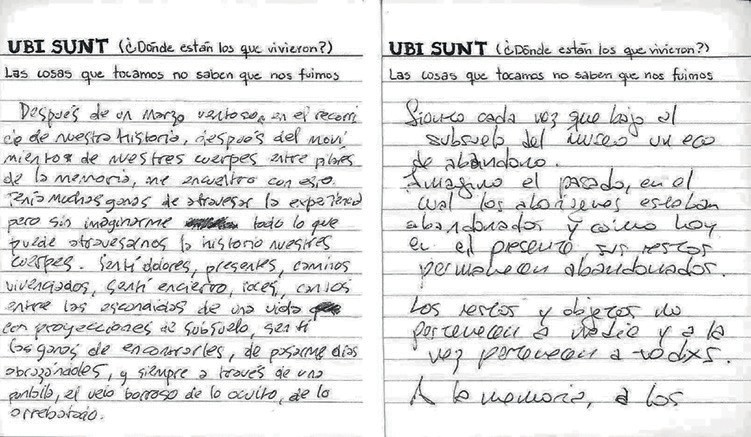 UBI SUNT (¿Dónde están los que vivieron?)
Las cosas que tocamos no saben que nos fuimos
Después de un Marzo ventoso, en el recorri
do de nuestra historia, después del movi
mientos de nuestres cuerpes entre
de la memoria, me encuentro con esto.
Tenía muchas ganas de atravesar la experiencia
pero sin imaginarme todo lo que
puede atravesarnos la historia nuestres
cuerpes. Sentí dolores, presentes, caminos
vivenciados, sentí encierro, voces, cantos
entre las escondidas de una vida
con proyecciones de subsuelo, sentí
las ganas de encontrarles, de pasarme días
abrazándoles, y siempre a través de una
pantalla, el velo borroso de lo oculto, de lo
arrebatado.
UBI SUNT (¿Dónde están los que vivieron?)
Las cosas que tocamos no saben que nos fuimos
Siento cada vez que bajo al
subsuelo del museo un eco
de abandono.
Imagino el pasado, en el
cual los aborígenes estaban
abandonados y cómo hoy
en el presente sus restos
permanecen abandonados.
Los restos y objetos no
pertenecen a nadie y a la
vez pertenecen a todxs.
A la memoria, a los